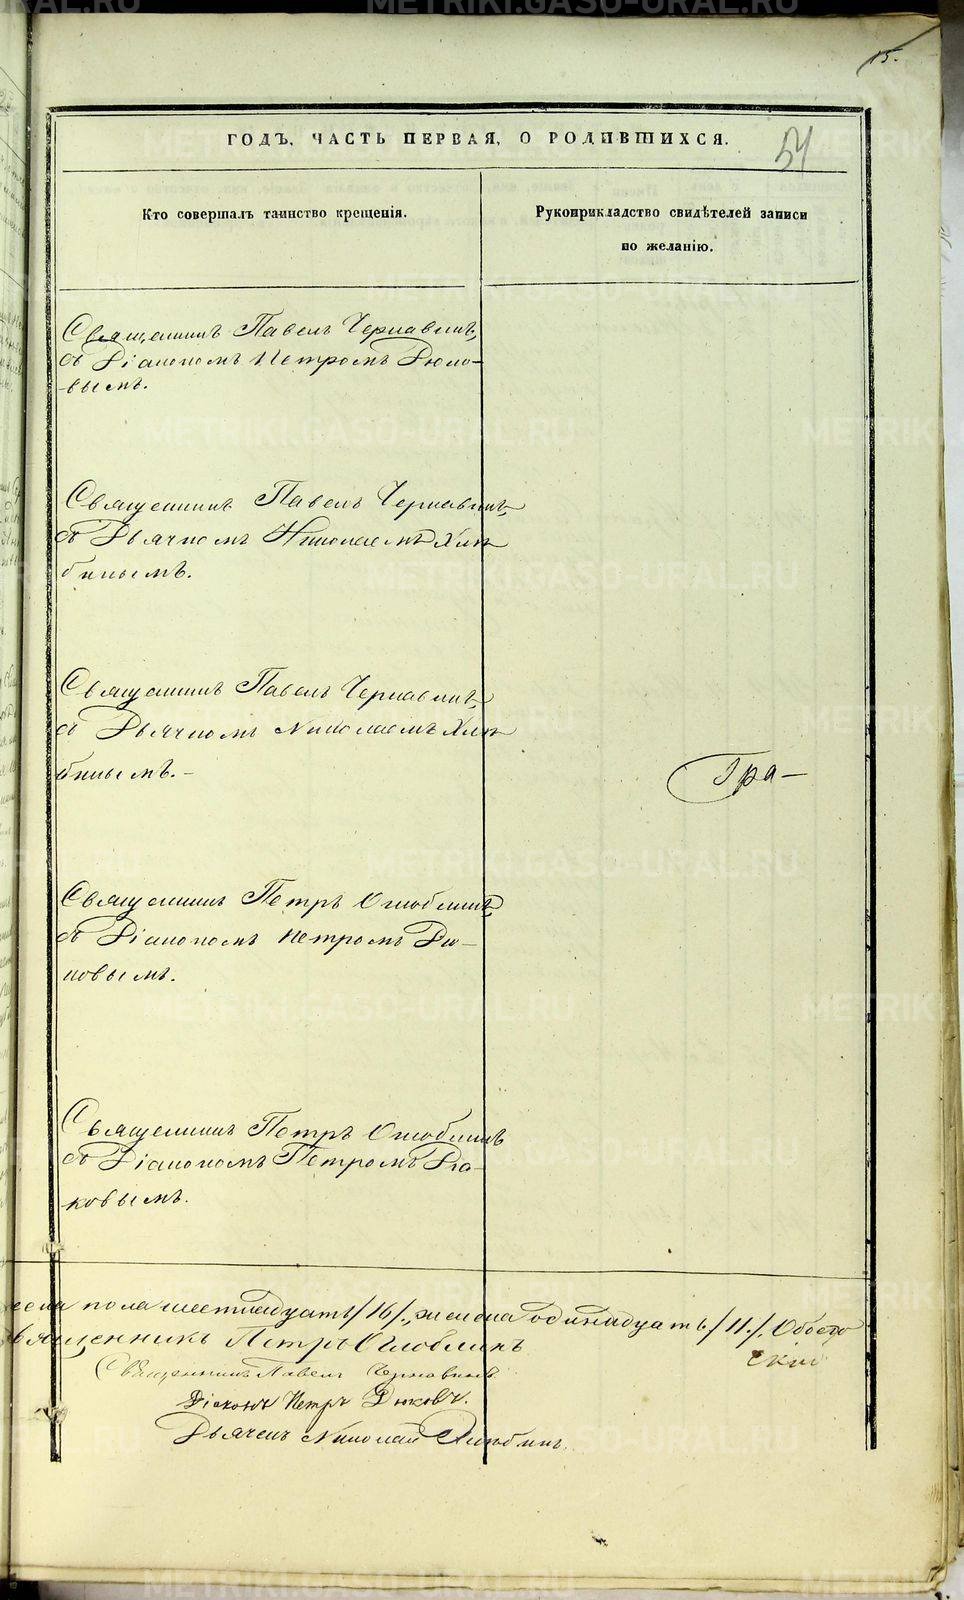 15.
54
ГОДЪ, ЧАСТЬ ПЕРВАЯ, О РОДИВШИХСЯ.
Кто совершалъ таинство крещенія.
Рукоприкладство свидѣтелей записи
по желанію.
Священникъ Павелъ Чернавинъ,
съ Діакономъ Петромъ Дюко-
вымъ.
Священникъ Павелъ Чернавинъ,
съ Дьячкомъ Николаемъ Хлѣ
бинымъ.
Священникъ Павелъ Чернавинъ,
съ Дьячкомъ Николаемъ Хлѣ
бинымъ.-
Гра-
Священникъ Петръ Оглоблинъ,
съ Діакономъ Петромъ Дю-
ковымъ.
Священникъ Петръ Оглоблинъ
съ Діакономъ Петромъ Дю-
ковымъ.
пола шестнадцать /16/, женска одинадцать /11./. Обоего
Священникъ Петръ Оглоблинъ
Священникъ Павелъ Чернавинъ
Діаконъ Петръ Дюковъ.
Дьячекъ Николай Хлѣбинъ.
METRIKI.GASO-URAL.RU